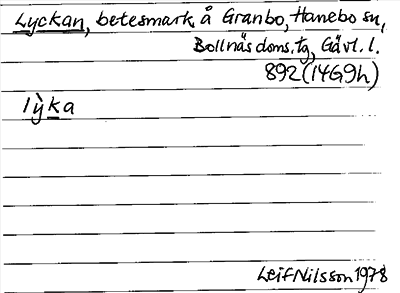 Lyckan, betesmark å Granbo, Hanebo sn,
Bollnäs doms. tg, Gävl. l.
892 (14G9h)
lỳka
Leif Nilsson 1978